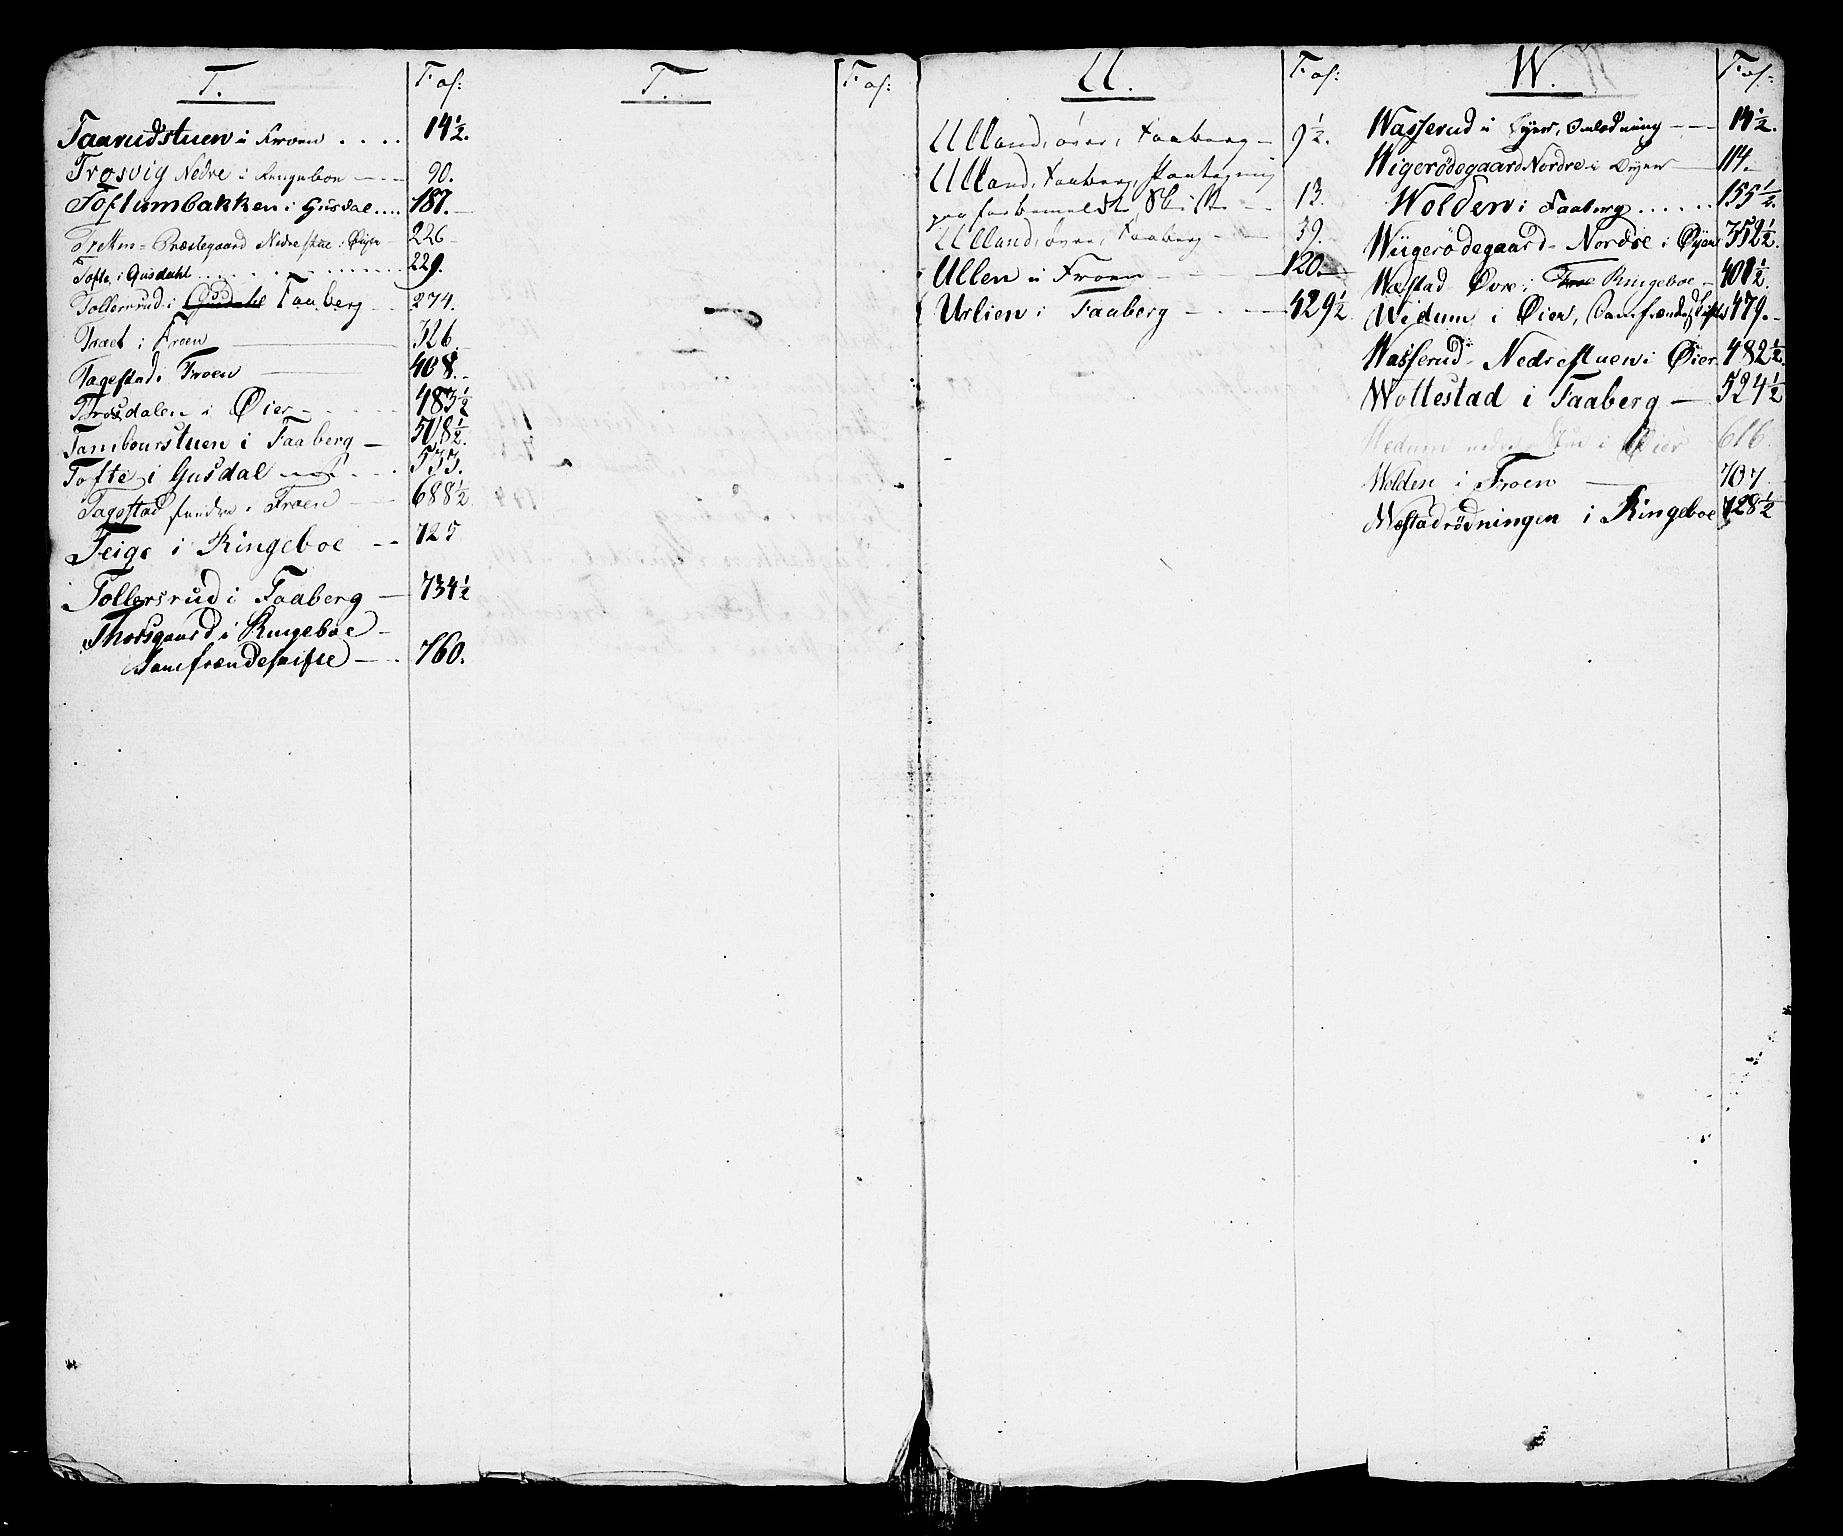 T.
Fol:
Taarudstuen i Froen . . . . 14½.
Trosvig Nedre i Ringeboe — 90.
Toftumbakken i Gusdal.... 187.
Tretten-Præstegaard Nedre stue i Øyer 226
Tofte i Gusdahl . . . . . 229.
Tollersrud i Gusdahl Faaberg — 274.
Traet i Froen — 326
Tagestad i Froen — 408.
Trosdalen i Øier — 483½
Tambourstuen i Faaberg — 508½.
Tofte i Gusdal — 533.
Tagestad søndre i Froen — 688½
Teige i Ringeboe — 725
Tollersrud i Faaberg — 734½
Thorsgaard i Ringeboe —
Samfrændeskifte — 760.
T.
Fol:
U.
Fol:
Ulland, øvre, Faaberg — 9½.
Ulland, Faaberg, Paategning
paa forbemeldte Skifte — 13.
Ulland, øvre, Faaberg — 39.
Ullen i Froen — 120.
Urlien i Faaberg — 429½
W.
Fol:
Wasserud i Øyer, Omlodning — 14½.
Wigerødegaard Nordre i Øyer — 114.
Wolden i Faaberg . . . . . 155½.
Wiigerødegaard- Nordre i Øyer 352½.
Wæstad Øvre i Froe Ringeboe — 401½.
Widum i Øier, Samfrændeskifte 479.
Wasserud- Nedrestuen i Øier 482½.
Wollestad i Faaberg — 524½
Wedum nedre Stue i Øier 616.
Wolden i Froen — 707
Wæstadrødningen i Ringeboe 728½